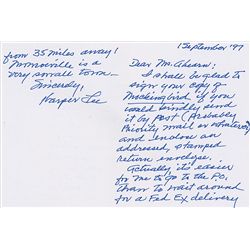 1 September '97
Dear Mr. Ahearn:
I shall be glad to
sign your copy of
Mockingbird if you
would kindly send
it by post (Probably
Priority mail or whatever)
and enclose an
addressed, stamped
return envelope.
Actually it's easier
for me to go to the P.O.
than to wait around
for a Fed Ex delivery
from 35 miles away!
Monroeville is a
very small town—
Sincerely,
Harper Lee